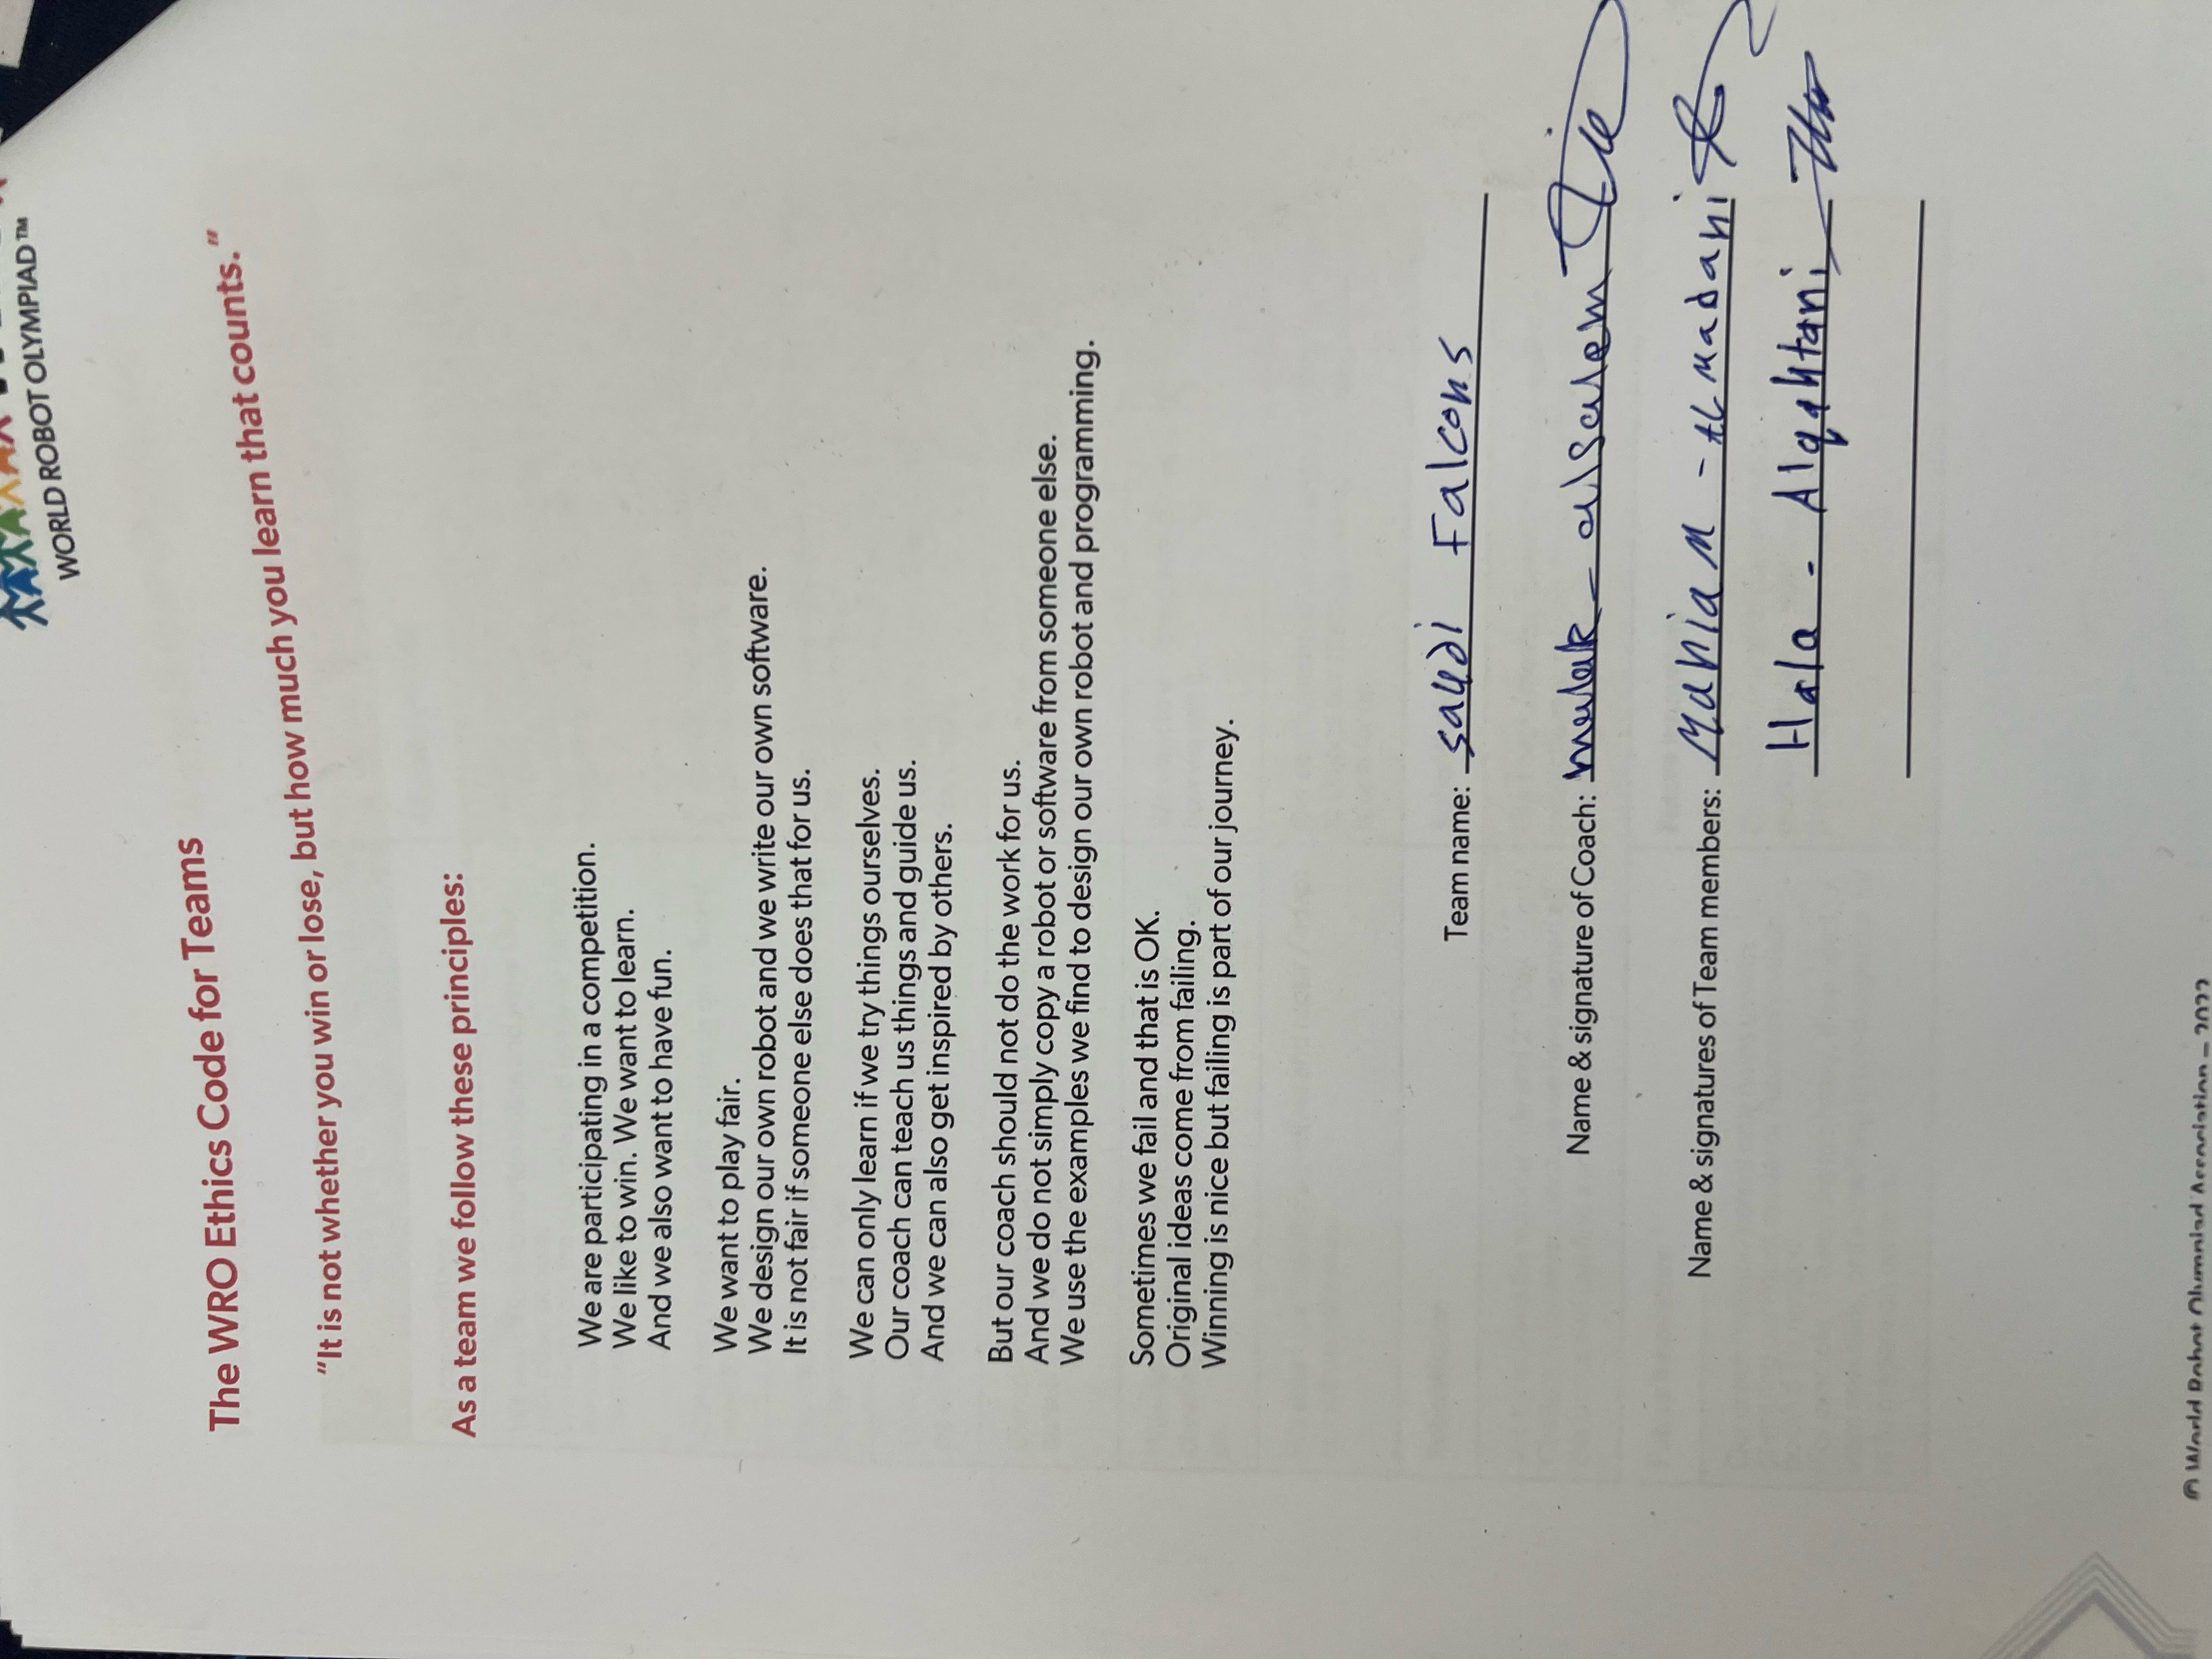 WORLD ROBOT OLYMPIAD™
The WRO Ethics Code for Teams
“It is not whether you win or lose, but how much you learn that counts.”
As a team we follow these principles:
We are participating in a competition.
We like to win. We want to learn.
And we also want to have fun.
We want to play fair.
We design our own robot and we write our own software.
It is not fair if someone else does that for us.
We can only learn if we try things ourselves.
Our coach can teach us things and guide us.
And we can also get inspired by others.
But our coach should not do the work for us.
And we do not simply copy a robot or software from someone else.
We use the examples we find to design our own robot and programming.
Sometimes we fail and that is OK.
Original ideas come from failing.
Winning is nice but failing is part of our journey.
Team name: saudi Falcons
Name & signature of Coach: malak - alsalem
Name & signatures of Team members: - ALMadani
Hala - Alqahtani
© World Robot Olympiad Association –